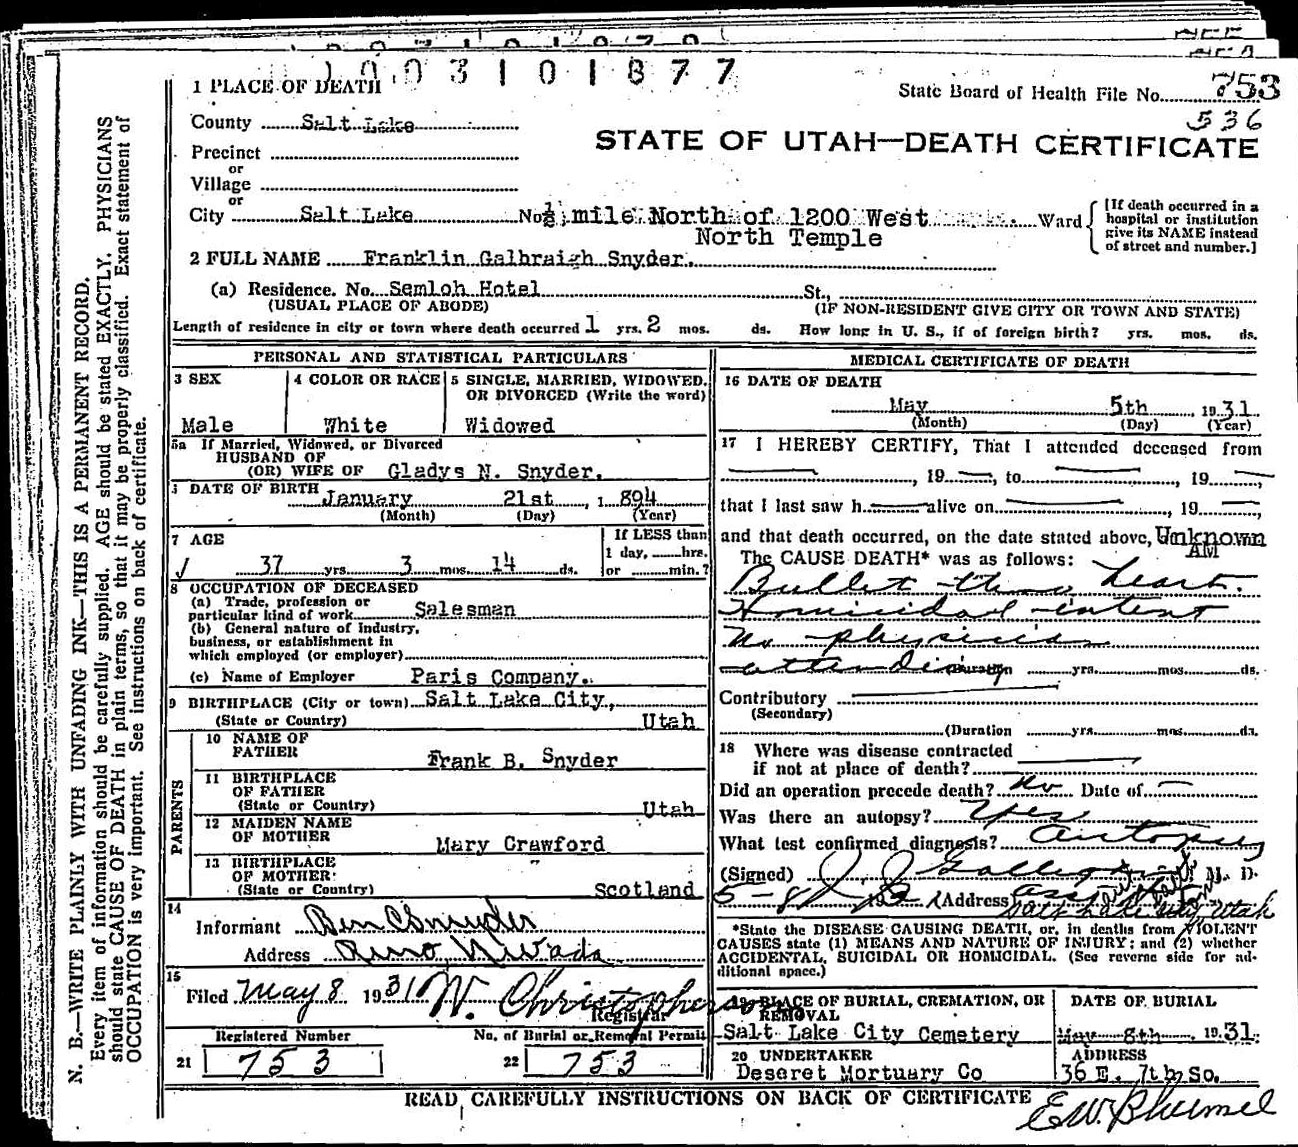 1003101877
1 PLACE OF DEATH
State Board of Health File No. 753
536
County Salt Lake
STATE OF UTAH—DEATH CERTIFICATE
Precinct
or
Village
or
City Salt Lake No. ½ mile North of 1200 West Ward
North Temple
[If death occurred in a
hospital or institution
give its NAME instead
of street and number.]
2 FULL NAME Franklin Galbraigh Snyder.
(a) Residence. No. Semloh Hotel St.,
(USUAL PLACE OF ABODE) (IF NON-RESIDENT GIVE CITY OR TOWN AND STATE)
Length of residence in city or town where death occurred 1 yrs. 2 mos. ds. How long in U. S., if of foreign birth? yrs. mos. ds.
PERSONAL AND STATISTICAL PARTICULARS
3 SEX
Male
4 COLOR OR RACE
White
5 SINGLE, MARRIED, WIDOWED,
OR DIVORCED (Write the word)
Widowed
5a If Married, Widowed, or Divorced
HUSBAND OF
(OR) WIFE OF Gladys N. Snyder.
DATE OF BIRTH January 21st, 1894
(Month) (Day) (Year)
7 AGE
37 yrs. 3 mos. 14 ds.
If LESS than
1 day, hrs.
or min.?
8 OCCUPATION OF DECEASED
(a) Trade, profession or
particular kind of work Salesman
(b) General nature of industry,
business, or establishment in
which employed (or employer)
(c) Name of Employer Paris Company.
9 BIRTHPLACE (City or town) Salt Lake City,
(State or Country) Utah
PARENTS
10 NAME OF
FATHER Frank B. Snyder
11 BIRTHPLACE
OF FATHER
(State or Country) Utah
12 MAIDEN NAME
OF MOTHER Mary Crawford
13 BIRTHPLACE
OF MOTHER
(State or Country) Scotland
14
Informant Ben C Snyder
Address Reno, Nevada
15
Filed May 8 1931 W. Christopherson
Registrar
Registered Number
21 753
No. of Burial or Removal Permit
22 753
MEDICAL CERTIFICATE OF DEATH
16 DATE OF DEATH
May 5th, 1931
(Month) (Day) (Year)
17 I HEREBY CERTIFY, That I attended deceased from
, 19 , to , 19 ,
that I last saw h alive on , 19 ,
and that death occurred, on the date stated above, Unknown
AM
The CAUSE DEATH* was as follows:
Bullet thru heart.
Homicidal intent
No physician
attending Duration yrs. mos. ds.
Contributory
(Secondary)
(Duration yrs. mos. ds.
18 Where was disease contracted
if not at place of death?
Did an operation precede death? no Date of
Was there an autopsy? Yes
What test confirmed diagnosis? Autopsy
(Signed) M. D.
5-8 (Address
Salt Lake City, Utah
*State the DISEASE CAUSING DEATH, or, in deaths from VIOLENT
CAUSES state (1) MEANS AND NATURE OF INJURY; and (2) whether
ACCIDENTAL, SUICIDAL OR HOMICIDAL. (See reverse side for ad-
ditional space.)
19 PLACE OF BURIAL, CREMATION, OR
REMOVAL
Salt Lake City Cemetery
DATE OF BURIAL
May 8th, 1931.
20 UNDERTAKER
Deseret Mortuary Co
ADDRESS
36 E. 7th So.
READ CAREFULLY INSTRUCTIONS ON BACK OF CERTIFICATE
N. B.—WRITE PLAINLY WITH UNFADING INK—THIS IS A PERMANENT RECORD.
Every item of information should be carefully supplied. AGE should be stated EXACTLY. PHYSICIANS
should state CAUSE OF DEATH in plain terms, so that it may be properly classified. Exact statement of
OCCUPATION is very important. See instructions on back of certificate.